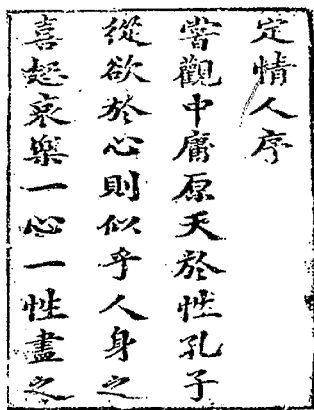 定情人序
嘗觀中庸原天於性孔子
從欲於心則似乎人身之
喜怒哀樂一心一性盡之